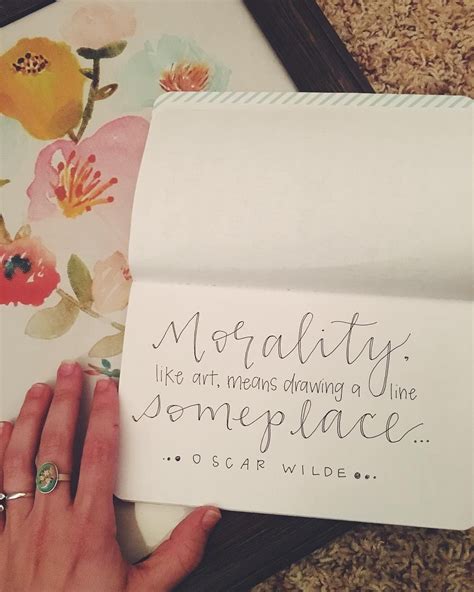 Morality,
like art, means drawing a line
someplace...
...OSCAR WILDE...